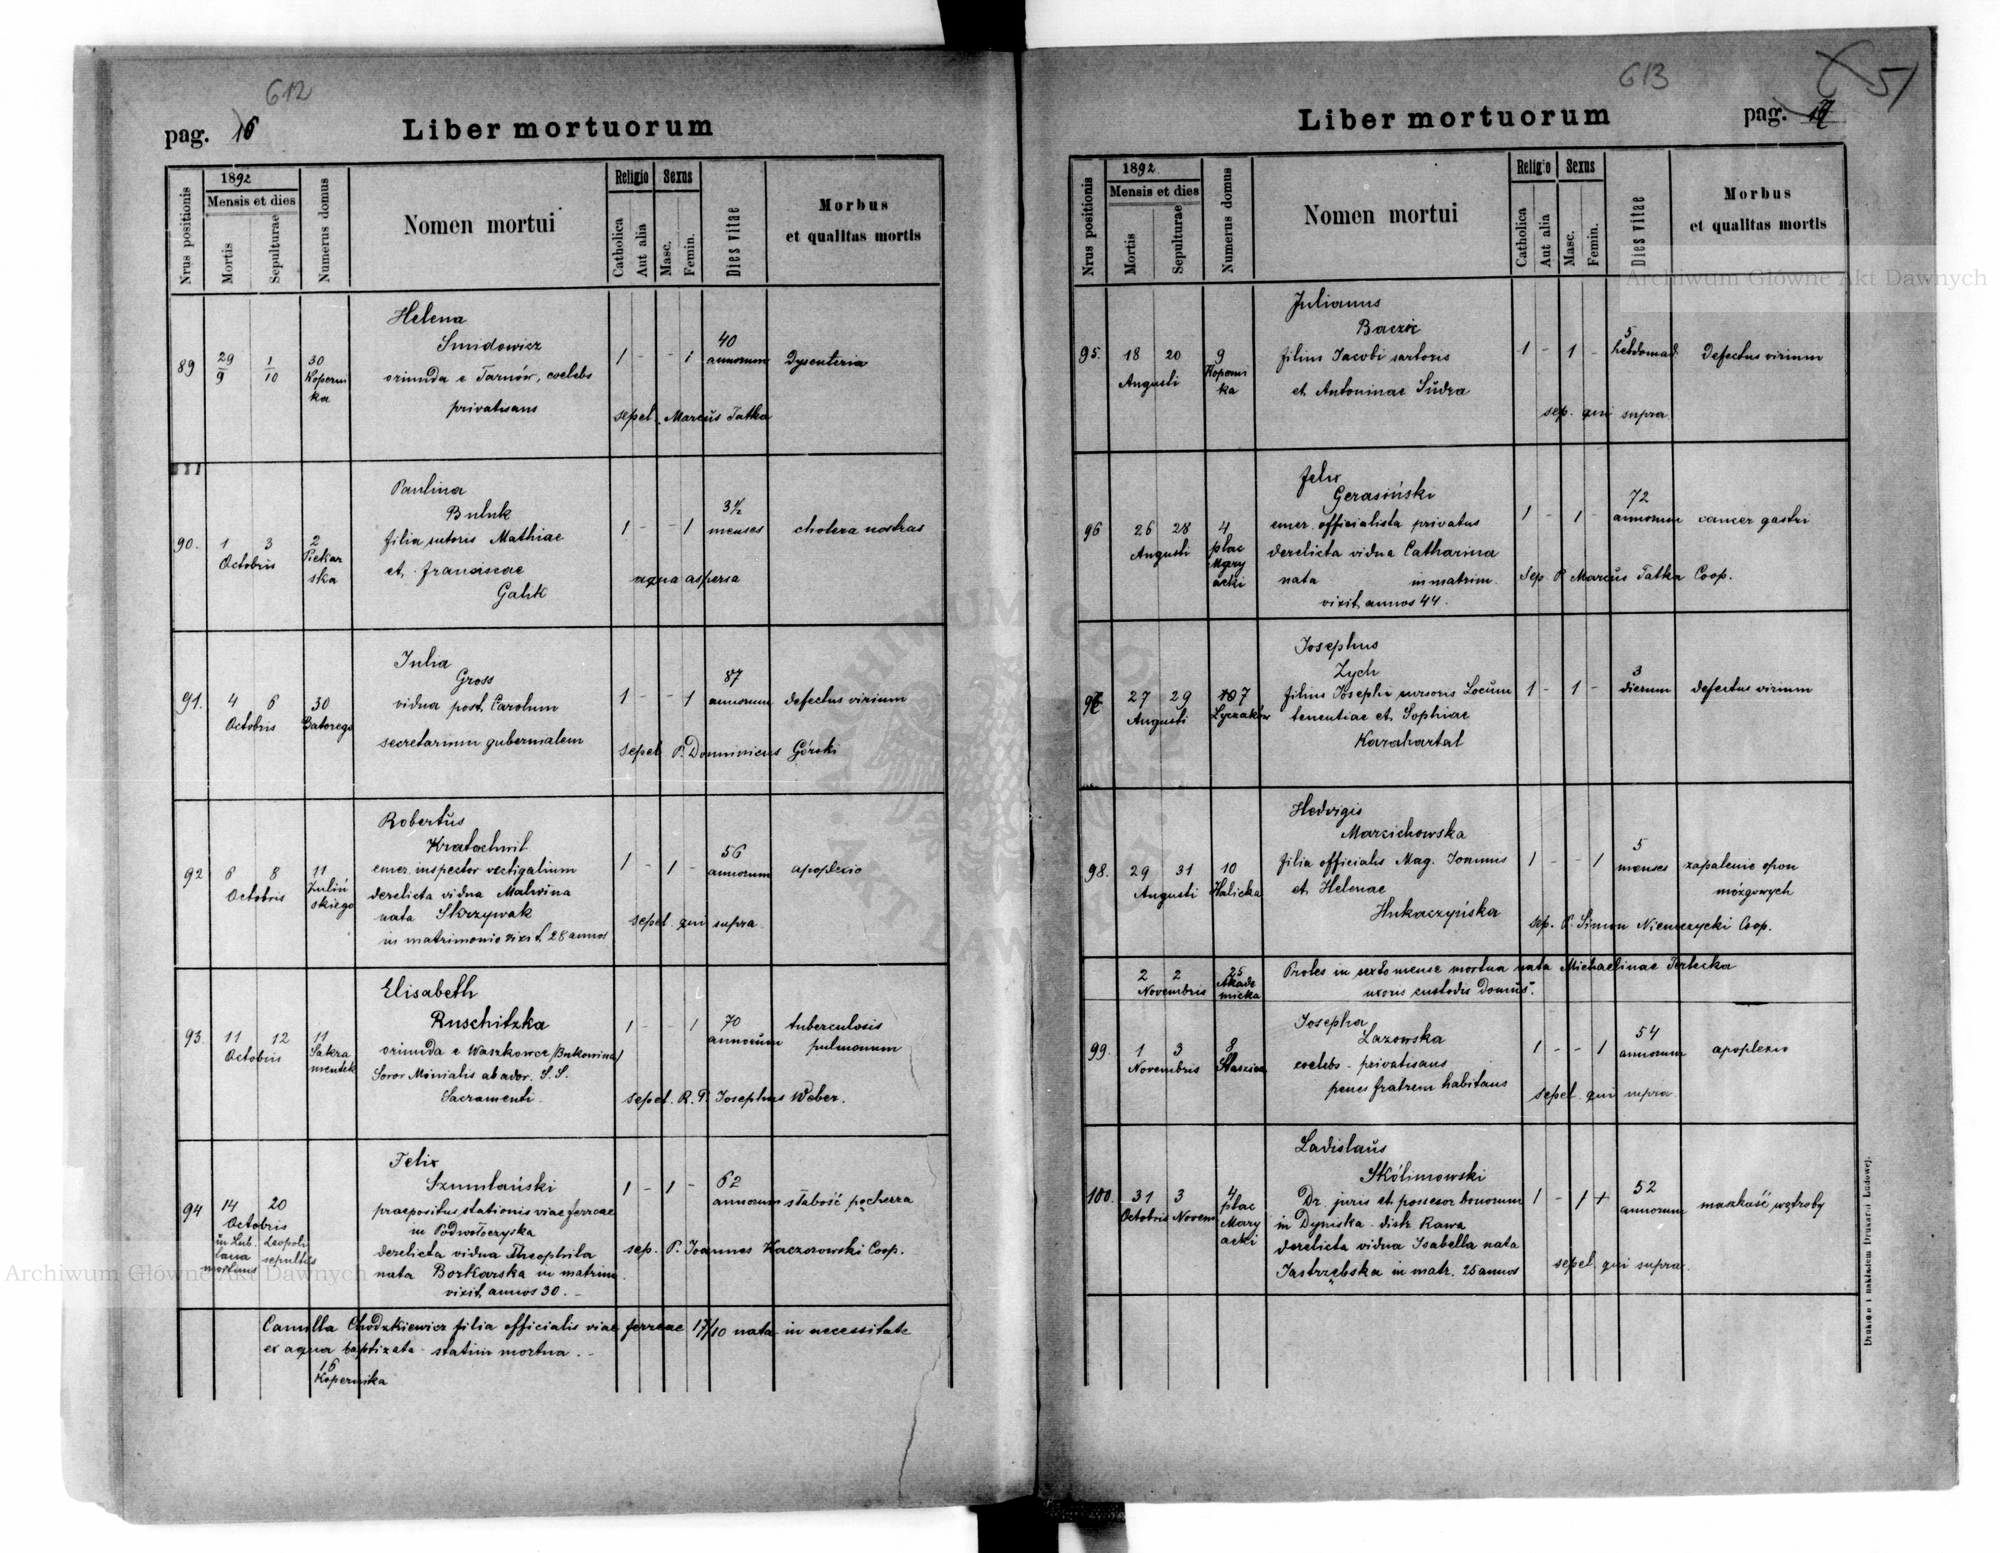 612
pag. 16
Liber mortuorum
Nrus positionis
1892
Mensis et dies
Mortis
Sepulturae
Numerus domus
Nomen mortui
Religio
Catholica
Aut alia
Sexus
Masc.
Femin.
Dies vitae
Morbus
et qualitas mortis
89
29/9
1/10
30
Koperni
ka
Helena
Smidowicz
oriunda e Tarnów, coelebs
privatisans
1 - - 1
40
annorum
Dysenteria
sepel. Marcŭs Tatka
90.
1 3
Octobris
2
Piekar
ska
Paulina
Buluk
filia sutoris Mathiae
et franciscae
Galik
1 - - 1
3 1/2
menses
cholera nostras
aqua aspersa
91.
4 6
Octobris
30
Batorego
Julia
Gross
vidua post Carolum
secretarium gubernialem
1 - - 1
87
annorum
defectus virium
sepel P. Dominicus Górski
92
6 8
Octobris
11
Zuliń
skiego
Robertŭs
Kratochwil
emer. inspector vectigalium
derelicta vidua Malwina
nata Skrzywak
in matrimonio vixit 28 annos
1 - 1 -
56
annorum
apoplexio
sepel qui supra
93.
11 12
Octobris
11
Sakra
mentek
Elisabeth
Ruschitzka
oriunda e Waszkowce /Bukowina/
Soror Monialis ab ador. S.S.
Sacramenti.
1 - - 1
70
annorum
tuberculosis
pulmonum
sepel. R. P. Josephus Weber.
94
14 20
Octobris
in Lub. Leopoli
lana sepultŭs
mortuus
Felix
Szumlański
praepositus stationis viae ferreae
in Podwołoczyska
derelicta vidua Theophila
nata Borkarska in matrim.
vixit annos 30. -
1 - 1 -
62
annorum
słabość pęcherza
sep. P. Joannes Kaczorowski Coop.
Camilla Chodzkiewicz filia officialis viae ferreae 17/10 nata in necessitate
ex aqua baptizata - statim mortua. -
16
Kopernika
613
51
Liber mortuorum
pag. 17
Nrus positionis
1892
Mensis et dies
Mortis
Sepulturae
Numerus domus
Nomen mortui
Religio
Catholica
Aut alia
Sexus
Masc.
Femin.
Dies vitae
Morbus
et qualitas mortis
95.
18 20
Augusti
9
Koperni
ka
Julianus
Baczic
filius Jacobi sartoris
et Antoninae Sŭdra
1 - 1 -
5
hebdomad.
defectus virium
sep. qui supra
96
26 28
Augusti
4
plac
Mary
acki
Felix
Gerasiński
emer. officialista privatus
derelicta vidua Catharina
nata in matrim.
vixit annos 44.
1 - 1 -
72
annorum
cancer gastri
Sep. P. Marcŭs Tatka Coop.
97
27 29
Augusti
7
Łyczaków
Josephus
Zych
filius Josephi cursoris Locŭm
tenentiae et Sophiae
Karahartal
1 - 1 -
3
dierum
defectus virium
98.
29 31
Augusti
10
Halicka
Hedvigis
Marcichowska
filia officialis Mag. Joannis
et Helenae
Hukaczyńska
1 - - 1
5
menses
zapalenie opon
mózgowych
sep. P. Simon Niemczycki Coop.
2 2
Novembris
25
Akade
micka
Proles in sexto mense mortua nata Michaelinae Terlecka
uxoris custodis domŭs.
99.
1 3
Novembris
8
Staszica
Josepha
Lazowska
coelebs - privatisans
penes fratrem habitans
1 - - 1
54
annorum
apoplexio
sepel qui supra
100.
31 3
Octobris Novem
4
plac
Mary
acki
Ladislaŭs
Skólimowski
Dr. juris et possesor bonorum
in Dyniska distr. Rawa
derelicta vidua Isabella nata
Jastrzębska in matr. 25 annos
1 - 1 +
52
annorum
marskość wątroby
sepel qui supra.
Drukiem i nakładem Drukarni Ludowej.
Archiwum Główne Akt Dawnych
Archiwum Główne Akt Dawnych